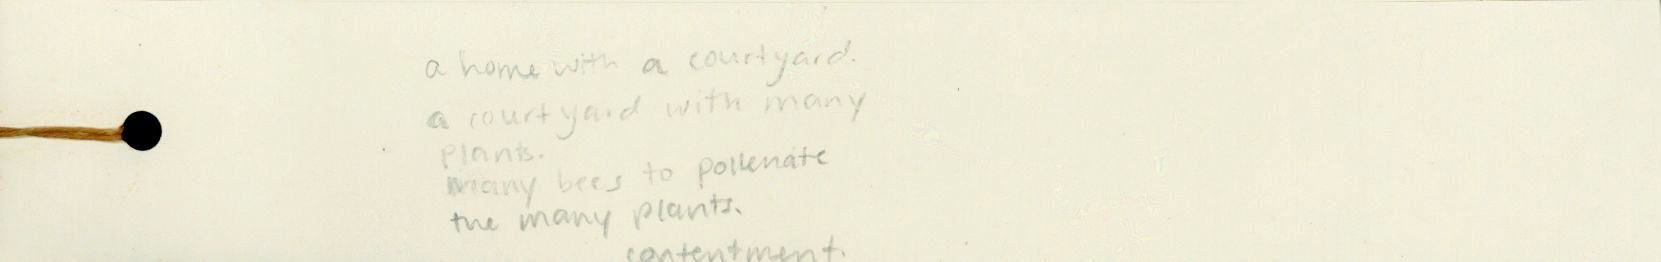 a home with a courtyard.
a courtyard with many
plants.
many bees to pollenate
the many plants.
contentment.